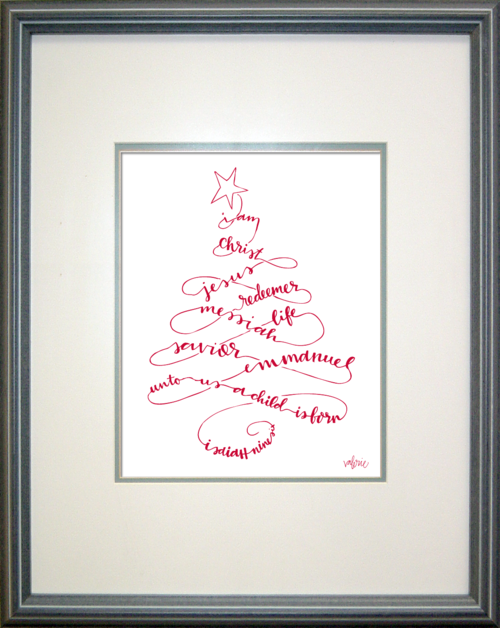 i am
christ
jesus
redeemer
messiah life
savior emmanuel
unto us a child is born
isaiah nine six